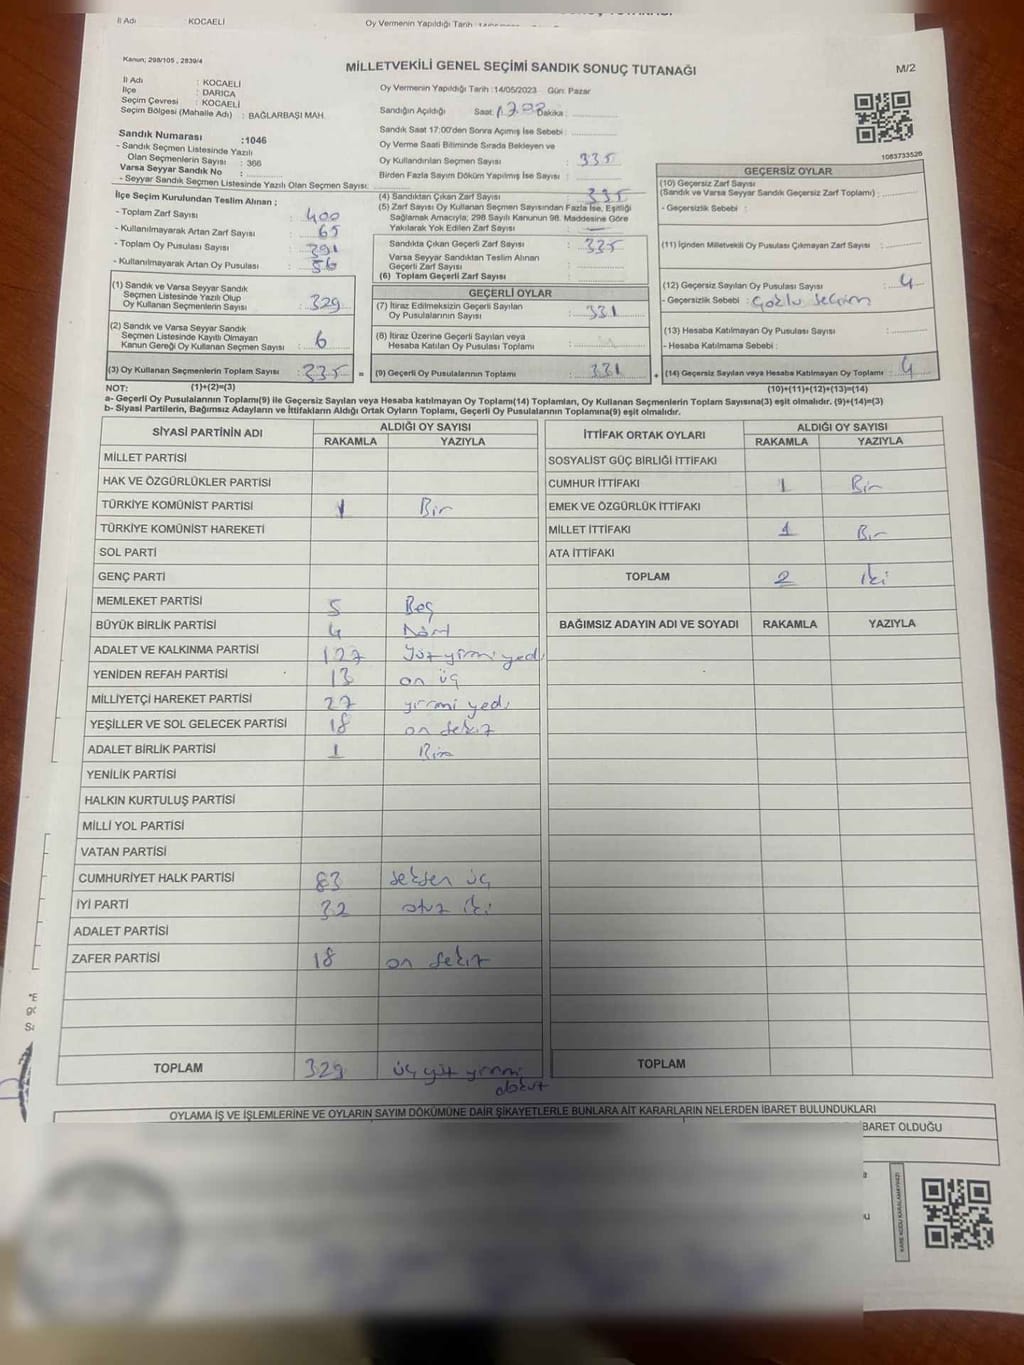 İl Adı : KOCAELİ
Oy Vermenin Yapıldığı Tarih :
Kanun; 298/105 , 2839/4
MİLLETVEKİLİ GENEL SEÇİMİ SANDIK SONUÇ TUTANAĞI
M/2
İl Adı : KOCAELİ
İlçe : DARICA
Seçim Çevresi : KOCAELİ
Seçim Bölgesi (Mahalle Adı) : BAĞLARBAŞI MAH.
Sandık Numarası :1046
- Sandık Seçmen Listesinde Yazılı
Olan Seçmenlerin Sayısı : 366
Varsa Seyyar Sandık No :
- Seyyar Sandık Seçmen Listesinde Yazılı Olan Seçmen Sayısı:
İlçe Seçim Kurulundan Teslim Alınan ;
- Toplam Zarf Sayısı : 400
- Kullanılmayarak Artan Zarf Sayısı : 65
- Toplam Oy Pusulası Sayısı : 391
- Kullanılmayarak Artan Oy Pusulası : 56
(1) Sandık ve Varsa Seyyar Sandık
Seçmen Listesinde Yazılı Olup
Oy Kullanan Seçmenlerin Sayısı : 329
(2) Sandık ve Varsa Seyyar Sandık
Seçmen Listesinde Kayıtlı Olmayan
Kanun Gereği Oy Kullanan Seçmen Sayısı : 6
(3) Oy Kullanan Seçmenlerin Toplam Sayısı : 335 =
Oy Vermenin Yapıldığı Tarih :14/05/2023 Gün: Pazar
Sandığın Açıldığı Saat: Dakika :
Sandık Saat 17:00'den Sonra Açımış İse Sebebi :
Oy Verme Saati Bitiminde Sırada Bekleyen ve
Oy Kullandırılan Seçmen Sayısı : 335
Birden Fazla Sayım Döküm Yapılmış İse Sayısı :
(4) Sandıktan Çıkan Zarf Sayısı : 335
(5) Zarf Sayısı Oy Kullanan Seçmen Sayısından Fazla İse, Eşitliği
Sağlamak Amacıyla; 298 Sayılı Kanunun 98. Maddesine Göre
Yakılarak Yok Edilen Zarf Sayısı : —
Sandıkta Çıkan Geçerli Zarf Sayısı : 335
Varsa Seyyar Sandıktan Teslim Alınan
Geçerli Zarf Sayısı :
(6) Toplam Geçerli Zarf Sayısı :
GEÇERLİ OYLAR
(7) İtiraz Edilmeksizin Geçerli Sayılan
Oy Pusulalarının Sayısı : 331
(8) İtiraz Üzerine Geçerli Sayılan veya
Hesaba Katılan Oy Pusulası Toplamı :
(9) Geçerli Oy Pusulalarının Toplamı : 331 +
1083733526
GEÇERSİZ OYLAR
(10) Geçersiz Zarf Sayısı
(Sandık ve Varsa Seyyar Sandık Geçersiz Zarf Toplamı) :
- Geçersizlik Sebebi :
(11) İçinden Milletvekili Oy Pusulası Çıkmayan Zarf Sayısı :
(12) Geçersiz Sayılan Oy Pusulası Sayısı : 4
- Geçersizlik Sebebi : Çoklu seçim
(13) Hesaba Katılmayan Oy Pusulası Sayısı :
- Hesaba Katılmama Sebebi :
(14) Geçersiz Sayılan veya Hesaba Katılmayan Oy Toplamı : 4
NOT: (1)+(2)=(3) (10)+(11)+(12)+(13)=(14)
a- Geçerli Oy Pusulalarının Toplamı(9) ile Geçersiz Sayılan veya Hesaba katılmayan Oy Toplamı(14) Toplamları, Oy Kullanan Seçmenlerin Toplam Sayısına(3) eşit olmalıdır. (9)+(14)=(3)
b- Siyasi Partilerin, Bağımsız Adayların ve İttifakların Aldığı Ortak Oyların Toplamı, Geçerli Oy Pusulalarının Toplamına(9) eşit olmalıdır.
SİYASİ PARTİNİN ADI ALDIĞI OY SAYISI
RAKAMLA YAZIYLA
MİLLET PARTİSİ
HAK VE ÖZGÜRLÜKLER PARTİSİ
TÜRKİYE KOMÜNİST PARTİSİ 1 Bir
TÜRKİYE KOMÜNİST HAREKETİ
SOL PARTİ
GENÇ PARTİ
MEMLEKET PARTİSİ 5 Beş
BÜYÜK BİRLİK PARTİSİ 4 Dört
ADALET VE KALKINMA PARTİSİ 127 Yüz yirmi yedi
YENİDEN REFAH PARTİSİ 13 on üç
MİLLİYETÇİ HAREKET PARTİSİ 27 yirmi yedi
YEŞİLLER VE SOL GELECEK PARTİSİ 18 on sekiz
ADALET BİRLİK PARTİSİ 1 Bir
YENİLİK PARTİSİ
HALKIN KURTULUŞ PARTİSİ
MİLLİ YOL PARTİSİ
VATAN PARTİSİ
CUMHURİYET HALK PARTİSİ 83 seksen üç
İYİ PARTİ 32 otuz iki
ADALET PARTİSİ
ZAFER PARTİSİ 18 on sekiz
TOPLAM 329 üç yüz yirmi
dokuz
İTTİFAK ORTAK OYLARI ALDIĞI OY SAYISI
RAKAMLA YAZIYLA
SOSYALİST GÜÇ BİRLİĞİ İTTİFAKI
CUMHUR İTTİFAKI 1 Bir
EMEK VE ÖZGÜRLÜK İTTİFAKI
MİLLET İTTİFAKI 1 Bir
ATA İTTİFAKI
TOPLAM 2 iki
BAĞIMSIZ ADAYIN ADI VE SOYADI RAKAMLA YAZIYLA
TOPLAM
OYLAMA İŞ VE İŞLEMLERİNE VE OYLARIN SAYIM DÖKÜMÜNE DAİR ŞİKAYETLERLE BUNLARA AİT KARARLARIN NELERDEN İBARET BULUNDUKLARI
BARET OLDUĞU
KARE KODU KARALAMAYINIZ!